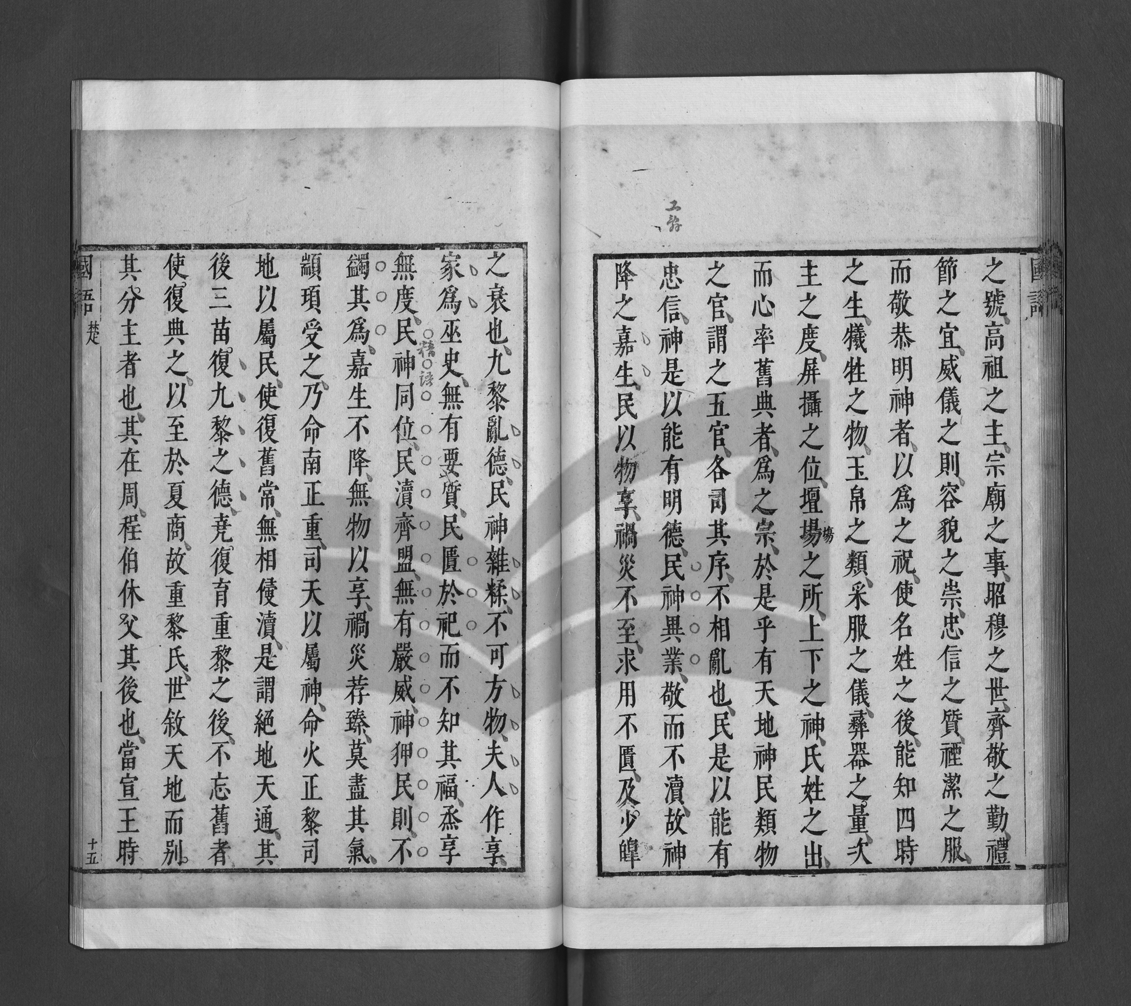 之號高祖之主宗廟之事昭穆之世齊敬之勤禮
節之宜威儀之則容貌之崇忠信之質禋潔之服
而敬恭明神者以爲之祝使名姓之後能知四時
之生犧牲之物玉帛之類采服之儀彝器之量次
主之度屏攝之位壇場之所上下之神氏姓之出
而心率舊典者爲之宗於是乎有天地神民類物
之官謂之五官各司其序不相亂也民是以能有
忠信神是以能有明德民神異業敬而不瀆故神
降之嘉生民以物享禍災不至求用不匱及少皥
之衰也九黎亂德民神雜糅不可方物夫人作享
家爲巫史無有要質民匱於祀而不知其福烝享
無度民神同位民瀆齊盟無有嚴威神狎民則不
蠲其爲嘉生不降無物以享禍災荐臻莫盡其氣
顓頊受之乃命南正重司天以屬神命火正黎司
地以屬民使復舊常無相侵瀆是謂絕地天通其
後三苗復九黎之德堯復育重黎之後不忘舊者
使復典之以至於夏商故重黎氏世敘天地而別
其分主者也其在周程伯休父其後也當宣王時
國語
楚
十五